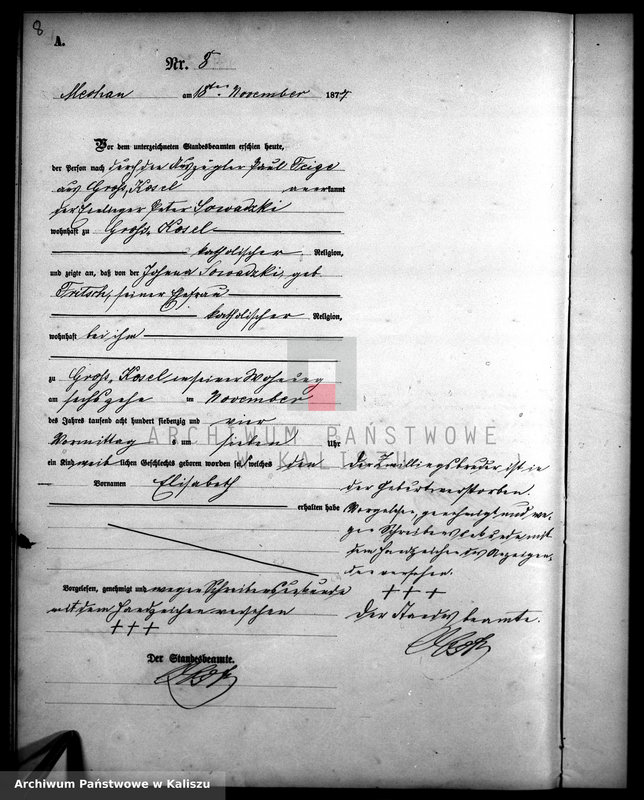 8
A.
Nr. 8
Mechau am 18ten November 1874
Vor dem unterzeichneten Standesbeamten erschien heute,
der Person nach durch den Auszügler Paul
aus Groß Kosel anerkannt
der Einlieger Peter Sowadzki
wohnhaft zu Groß Kosel
katholischer Religion,
und zeigte an, daß von der Johena Sowadzki, geb
Fritsch, seiner Ehefrau
katholischer Religion,
wohnhaft bei ihm
zu Groß Kosel in seiner Wohnung
am sechszehn ten November
des Jahres tausend acht hundert siebenzig und vier
Vormittag s um sieben Uhr
ein Kind weib lichen Geschlechts geboren worden sei, welches den
Vornamen Elisabeth
erhalten habe
Vorgelesen, genehmigt und wegen Schreibensunkunde
mit dem Handzeichen versehen
+++
Der Standesbeamte.
der Zwillingsbruder ist in
der Geburt verstorben.
Vorgelesen, genehmigt und we-
gen Schreibensunkunde mit
dem Handzeichen des Anzeigen-
den versehen.
+++
Der Standesbeamte.
ARCHIWUM PAŃSTWOWE
W KALISZU
Archiwum Państwowe w Kaliszu